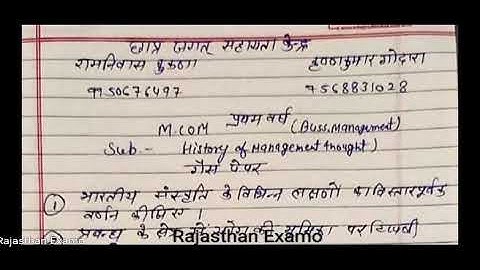 छात्र जगत सहायता केन्द्र
रामनिवास कुकणा कृष्णकुमार गोदारा
9950676497 9568831028
M.COM प्रथम वर्ष (Buss. Management)
Sub.- History of Management thought)
गैस पेपर
① भारतीय संस्कृति के विभिन्न लक्षणों का विस्तारपूर्वक
वर्णन कीजिए ।
प्रबन्ध के क्षेत्र में की पर टिप्पणी
Rajasthan Examo
Rajasthan Examo